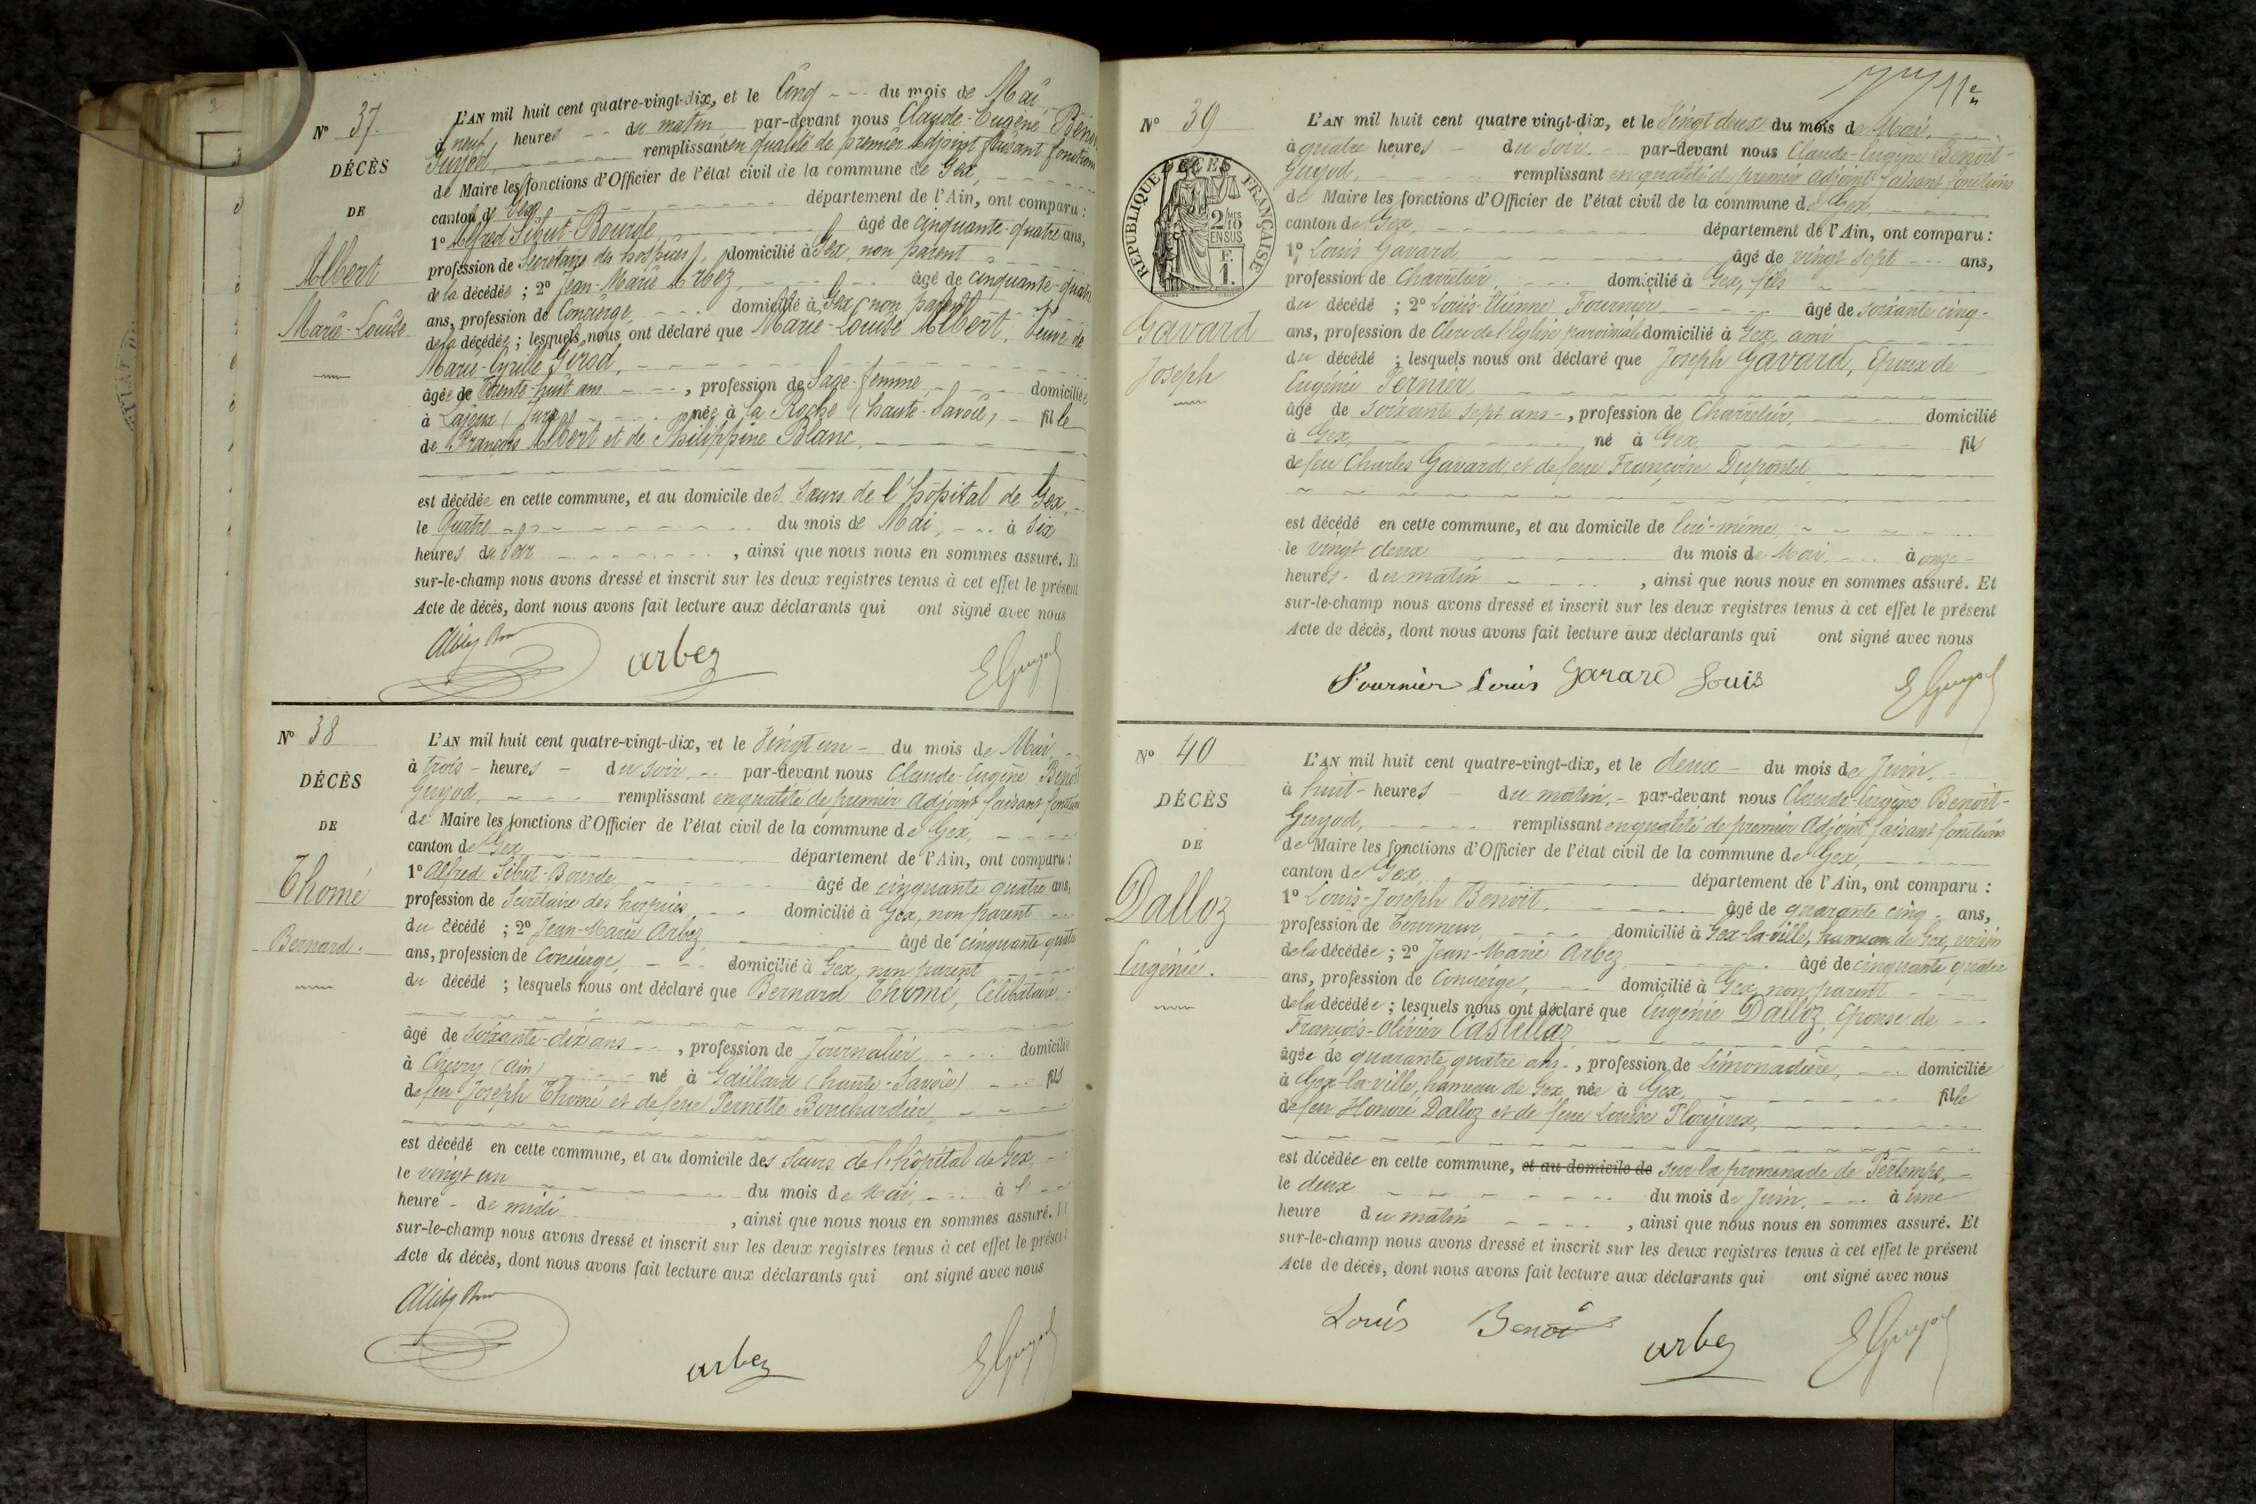 N° 37
DÉCÈS
DE
Albert
Marie-Louise
L'AN mil huit cent quatre-vingt-dix, et le Cinq du mois de Mai
à neuf heures du matin par-devant nous Claude-Eugène Benoit
Guyod, remplissant en qualité de premier Adjoint faisant fonctions
de Maire les fonctions d'Officier de l'état civil de la commune de Gex,
canton de Gex, département de l'Ain, ont comparu :
1° Alfred Sibut-Bourde, âgé de cinquante-quatre ans,
profession de Secrétaire des hospices, domicilié à Gex, non parent
de la décédée ; 2° Jean-Marie Arbez, âgé de cinquante-quatre
ans, profession de Concierge, domicilié à Gex, non parent
de la décédée ; lesquels nous ont déclaré que Marie-Louise Albert, Veuve de
Marie-Cyrille Girod,
âgée de Trente-huit ans, profession de Sage-femme, domiciliée
à Lajoux (Jura) née à La Roche (haute-Savoie), fille
de François Albert et de Philippine Blanc,
est décédée en cette commune, et au domicile des Sœurs de l'hôpital de Gex,
le Quatre du mois de Mai, à Six
heures du soir, ainsi que nous nous en sommes assuré. Et
sur-le-champ nous avons dressé et inscrit sur les deux registres tenus à cet effet le présent
Acte de décès, dont nous avons fait lecture aux déclarants qui ont signé avec nous
arbez E Guyod
N° 38
DÉCÈS
DE
Thomé
Bernard.
L'AN mil huit cent quatre-vingt-dix, et le Vingt un du mois de Mai,
à trois heures du soir, par-devant nous Claude-Eugène Benoit
Guyod, remplissant en qualité de premier Adjoint faisant fonctions
de Maire les fonctions d'Officier de l'état civil de la commune de Gex,
canton de Gex, département de l'Ain, ont comparu :
1° Alfred Sibut-Bourde âgé de cinquante quatre ans,
profession de Secrétaire des hospices, domicilié à Gex, non parent
du décédé ; 2° Jean-Marie Arbez, âgé de cinquante quatre
ans, profession de Concierge, domicilié à Gex, non parent
du décédé ; lesquels nous ont déclaré que Bernard Thomé, Célibataire
âgé de soixante-dix ans, profession de Journalier, domicilié
à Chevry (ain) né à Gaillard (haute-Savoie) fils
de feu Joseph Thomé et de feue Pernette Bouchardier,
est décédé en cette commune, et au domicile des Sœurs de l'hôpital de Gex,
le vingt un du mois de Mai, à l'
heure de midi, ainsi que nous nous en sommes assuré. Et
sur-le-champ nous avons dressé et inscrit sur les deux registres tenus à cet effet le présent
Acte de décès, dont nous avons fait lecture aux déclarants qui ont signé avec nous
arbez E Guyod
11e
N° 39
DÉCÈS
RÉPUBLIQUE FRANÇAISE
2/10 EN SUS
F. 1.
Gavard
Joseph
L'AN mil huit cent quatre vingt-dix, et le Vingt deux du mois de Mai,
à quatre heures du soir par-devant nous Claude-Eugène Benoit-
Guyod, remplissant en qualité de premier Adjoint faisant fonctions
de Maire les fonctions d'Officier de l'état civil de la commune de Gex,
canton de Gex, département de l'Ain, ont comparu :
1° Louis Gavard, âgé de vingt sept ans,
profession de Charretier, domicilié à Gex, fils
du décédé ; 2° Louis-Etienne Fournier âgé de soixante cinq
ans, profession de Clerc de l'Eglise paroissiale domicilié à Gex, ami
du décédé ; lesquels nous ont déclaré que Joseph Gavard, Epoux de
Eugénie Pernier
âgé de soixante sept ans, profession de Charretier, domicilié
à Gex, né à Gex, fils
de feu Charles Gavard et de feue Françoise Dupontet,
est décédé en cette commune, et au domicile de lui-même
le vingt deux du mois de Mai à onze
heures du matin, ainsi que nous nous en sommes assuré. Et
sur-le-champ nous avons dressé et inscrit sur les deux registres tenus à cet effet le présent
Acte de décès, dont nous avons fait lecture aux déclarants qui ont signé avec nous
Fournier Louis Gavard Louis E Guyod
N° 40
DÉCÈS
DE
Dalloz
Eugénie.
L'AN mil huit cent quatre-vingt-dix, et le deux du mois de Juin,
à huit heures du matin, par-devant nous Claude-Eugène Benoit-
Guyod, remplissant en qualité de premier Adjoint faisant fonctions
de Maire les fonctions d'Officier de l'état civil de la commune de Gex,
canton de Gex, département de l'Ain, ont comparu :
1° Louis-Joseph Benoit, âgé de quarante cinq ans,
profession de Tourneur, domicilié à Gex-la-ville, hameau de Gex, voisin
de la décédée ; 2° Jean-Marie Arbez âgé de cinquante quatre
ans, profession de Concierge, domicilié à Gex, non parent
de la décédée ; lesquels nous ont déclaré que Eugénie Dalloz, Epouse de
François-Olivier Castellaz,
âgée de quarante quatre ans, profession de Limonadière, domiciliée
à Gex-la-ville, hameau de Gex, née à Gex, fille
de feu Honoré Dalloz et de feue Louise Ploujoux,
est décédée en cette commune, et au domicile de sur la promenade de Pertemps,
le deux du mois de Juin, à une
heure du matin, ainsi que nous nous en sommes assuré. Et
sur-le-champ nous avons dressé et inscrit sur les deux registres tenus à cet effet le présent
Acte de décès, dont nous avons fait lecture aux déclarants qui ont signé avec nous
Louis Benoit arbez E Guyod